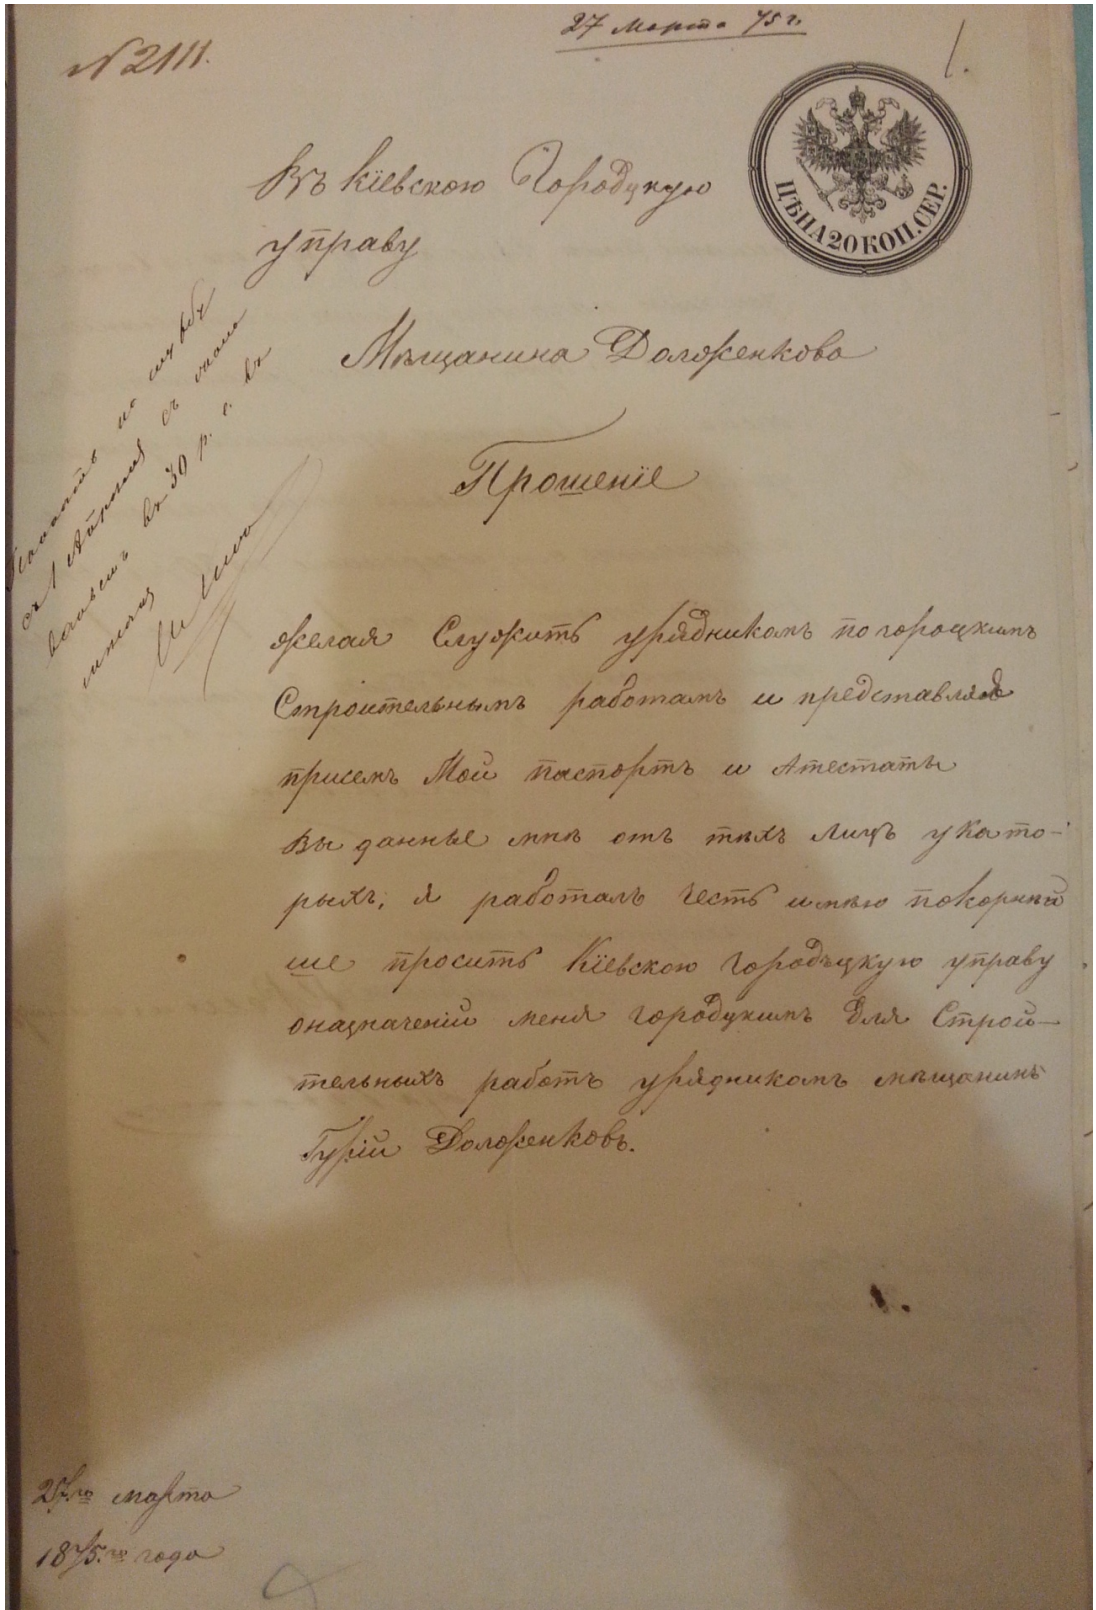 27 марта 75 г.
№ 2111.
1.
ЦѢНА 20 КОП. СЕР.
Въ Кіевскою Городцкую
управу
Мѣщанина Долженкова
Прошеніе
съ 1 Апреля съ
въ 30 р. с. въ
желая Служить урядникомъ по гороцкимъ
Строительнымъ работамъ и представляя
присемъ Мой паспортъ и Атестаты
Выданные мнѣ отъ тѣхъ Лицъ укато-
рыхъ, я работалъ Честь имѣю покорнѣй
ше просить Кіевскою городъцкую управу
оназначеніи меня городцкимъ для Строй-
тельныхъ работъ урядникомъ мѣщанинъ
Гурій Долженковъ.
27.го марта
1875.го года